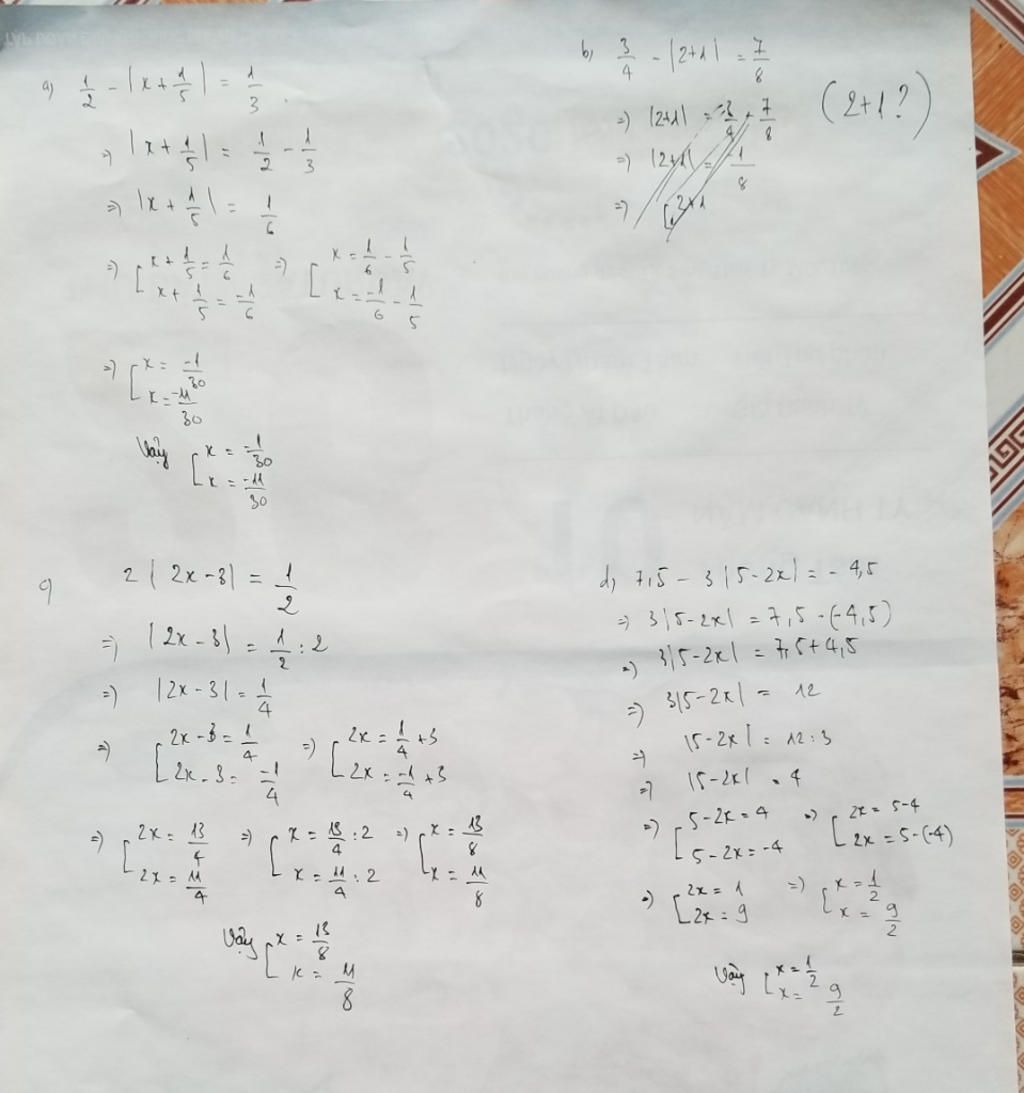 a) 1/2 - |x + 1/5| = 1/3
=> |x + 1/5| = 1/2 - 1/3
=> |x + 1/5| = 1/6
=> [x + 1/5 = 1/6 => [x = 1/6 - 1/5
x + 1/5 = -1/6 x = -1/6 - 1/5
=> [x = -1/30
x = -11/30
Vậy [x = -1/30
x = -11/30
b) 3/4 - |2+1| = 7/8
=> |2+1| = 3/4 - 7/8
(2+1?)
=> |2+1| = -1/8
=> [2+1
c) 2|2x-3| = 1/2
=> |2x-3| = 1/2 : 2
=> |2x-3| = 1/4
=> [2x-3 = 1/4 => [2x = 1/4 +3
2x-3 = -1/4 2x = -1/4 +3
=> [2x = 13/4 => [x = 13/4 : 2 => [x = 13/8
2x = 11/4 x = 11/4 : 2 x = 11/8
Vậy [x = 13/8
x = 11/8
d) 7,5 - 3|5-2x| = -4,5
=> 3|5-2x| = 7,5 - (-4,5)
=> 3|5-2x| = 7,5+4,5
=> 3|5-2x| = 12
=> |5-2x| = 12:3
=> |5-2x| = 4
=> [5-2x = 4 => [2x = 5-4
5-2x = -4 2x = 5-(-4)
=> [2x = 1 => [x = 1/2
2x = 9 x = 9/2
Vậy [x = 1/2
x = 9/2